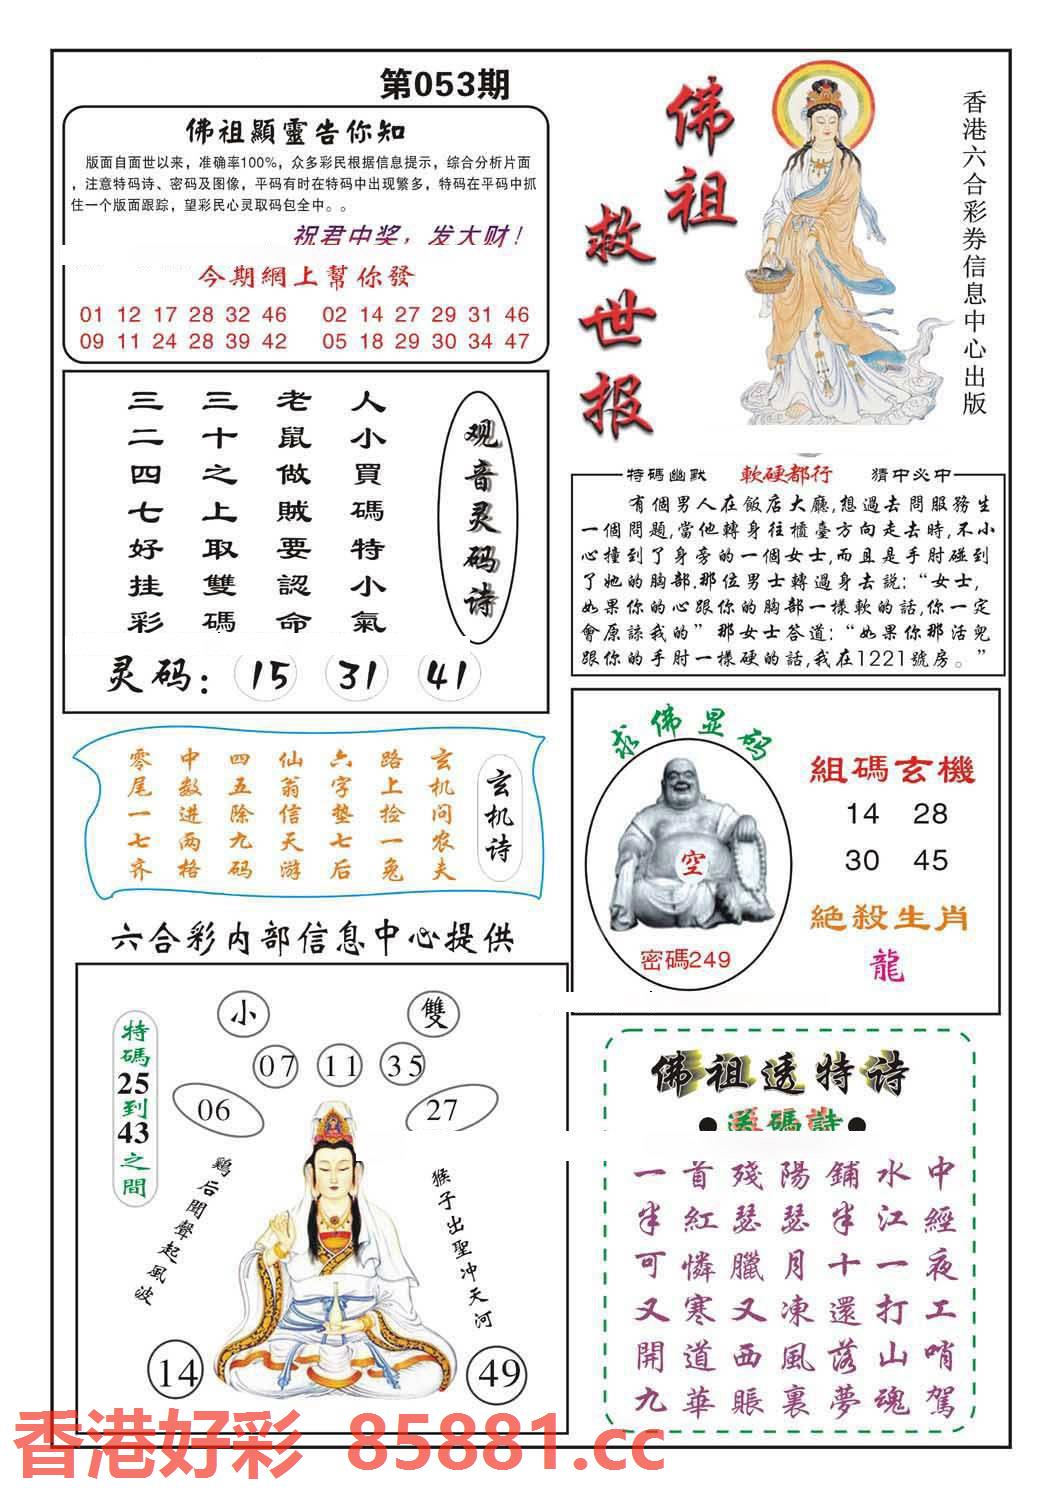 第053期
佛祖顯靈告你知
版面自面世以来，准确率100%，众多彩民根据信息提示，综合分析片面
，注意特码诗、密码及图像，平码有时在特码中出现繁多，特码在平码中抓
住一个版面跟踪，望彩民心灵取码包全中。。
祝君中奖，发大财！
今期網上幫你發
01 12 17 28 32 46 02 14 27 29 31 46
09 11 24 28 39 42 05 18 29 30 34 47
佛祖
救世报
香港六合彩券信息中心出版
观音灵码诗
人小買碼特小氣
老鼠做贼要認命
三十之上取雙碼
三二四七好挂彩
灵码：15 31 41
特碼幽默 軟硬都行 猜中必中
有個男人在飯店大廳,想過去問服務生
一個問題,當他轉身往櫃臺方向走去時,不小
心撞到了身旁的一個女士,而且是手肘碰到
了她的胸部.那位男士轉過身去説:“女士,
如果你的心跟你的胸部一樣軟的話,你一定
會原諒我的”那女士答道:“如果你那活兒
跟你的手肘一樣硬的話,我在1221號房。”
玄机诗
玄机问农夫
路上捡一兔
六字垫七后
仙翁信天游
四五除九码
中数进两格
零尾一七齐
求佛显码
空
密碼249
組碼玄機
14 28
30 45
絕殺生肖
龍
六合彩内部信息中心提供
特碼25到43之間
小 雙
07 11 35
06 27
鷄后聞聲起風波
猴子出聖冲天河
14 49
佛祖透特诗
●送碼詩●
中經夜工哨駕
水江一打山魂
鋪半十還落夢
陽瑟月凍風裏
殘瑟臘又西賬
首紅憐寒道華
一半可又開九
香港好彩 85881.cc